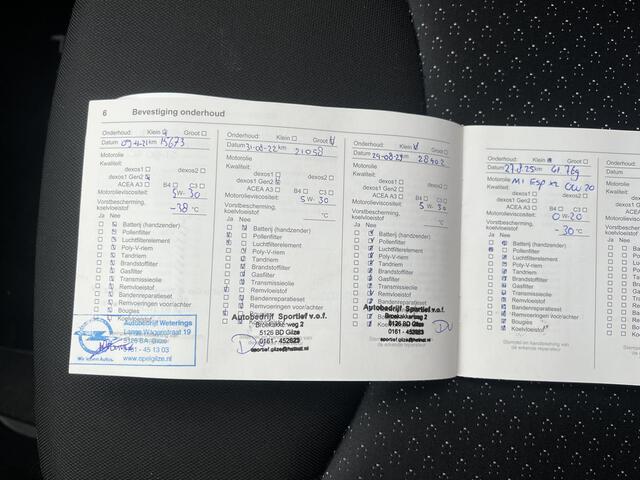 6 Bevestiging onderhoud
Onderhoud: Klein Groot
Datum 09-4-21 km 15673
Motorolie
Kwaliteit:
dexos1 dexos2
dexos1 Gen2
ACEA A3 B4 C3
Motorolieviscositeit: 5 W- 30
Vorstbescherming,
koelvloeistof -38 °C
Ja Nee
Batterij (handzender)
Pollenfilter
Luchtfilterelement
Poly-V-riem
Tandriem
Brandstoffilter
Gasfilter
Transmissieolie
Remvloeistof
Bandenreparatieset
Remvoeringen voor/achter
Bougies
Koelvloeistof
OPEL
Wir leben Autos.
Autobedrijf Weterings
Lange Wagenstraat 19
5126 BA, Gilze
0161 - 45 13 03
www.opelgilze.nl
Onderhoud: Klein Groot
Datum 31-08-22 km 21058
Motorolie
Kwaliteit:
dexos1 dexos2
dexos1 Gen2
ACEA A3 B4 C3
Motorolieviscositeit: 5 W- 30
Vorstbescherming,
koelvloeistof °C
Ja Nee
Batterij (handzender)
Pollenfilter
Luchtfilterelement
Poly-V-riem
Tandriem
Brandstoffilter
Gasfilter
Transmissieolie
Remvloeistof
Bandenreparatieset
Remvoeringen voor/achter
Autobedrijf Sportief v.o.f.
5126 BD Gilze
0161 - 452823
sportief.gilze@hetnet.nl
Onderhoud: Klein Groot
Datum 29-08-24 km 28902
Motorolie
Kwaliteit:
dexos1 dexos2
dexos1 Gen2
ACEA A3 B4 C3
Motorolieviscositeit: 5 W- 30
Vorstbescherming,
koelvloeistof °C
Ja Nee
Batterij (handzender)
Pollenfilter
Luchtfilterelement
Poly-V-riem
Tandriem
Brandstoffilter
Gasfilter
Transmissieolie
Remvloeistof
Bandenreparatieset
Remvoeringen voor/achter
Autobedrijf Sportief v.o.f.
5126 BD Gilze
0161 - 452823
sportief.gilze@hetnet.nl
Onderhoud: Klein Groot
Datum 27-8-25 km 41769
Motorolie M1 ESP x2 0W20
Kwaliteit:
dexos1 dexos2
dexos1 Gen2
ACEA A3 B4 C3
Motorolieviscositeit: 0 W-20
Vorstbescherming,
koelvloeistof -30 °C
Ja Nee
Batterij (handzender)
Pollenfilter
Luchtfilterelement
Poly-V-riem
Tandriem
Brandstoffilter
Gasfilter
Transmissieolie
Remvloeistof
Bandenreparatieset
Remvoeringen voor/achter
Bougies
Koelvloeistof
Stempel en handtekening van
de erkende reparateur
Onderhoud:
Datum
Motorolie
Kwaliteit:
Ja Nee